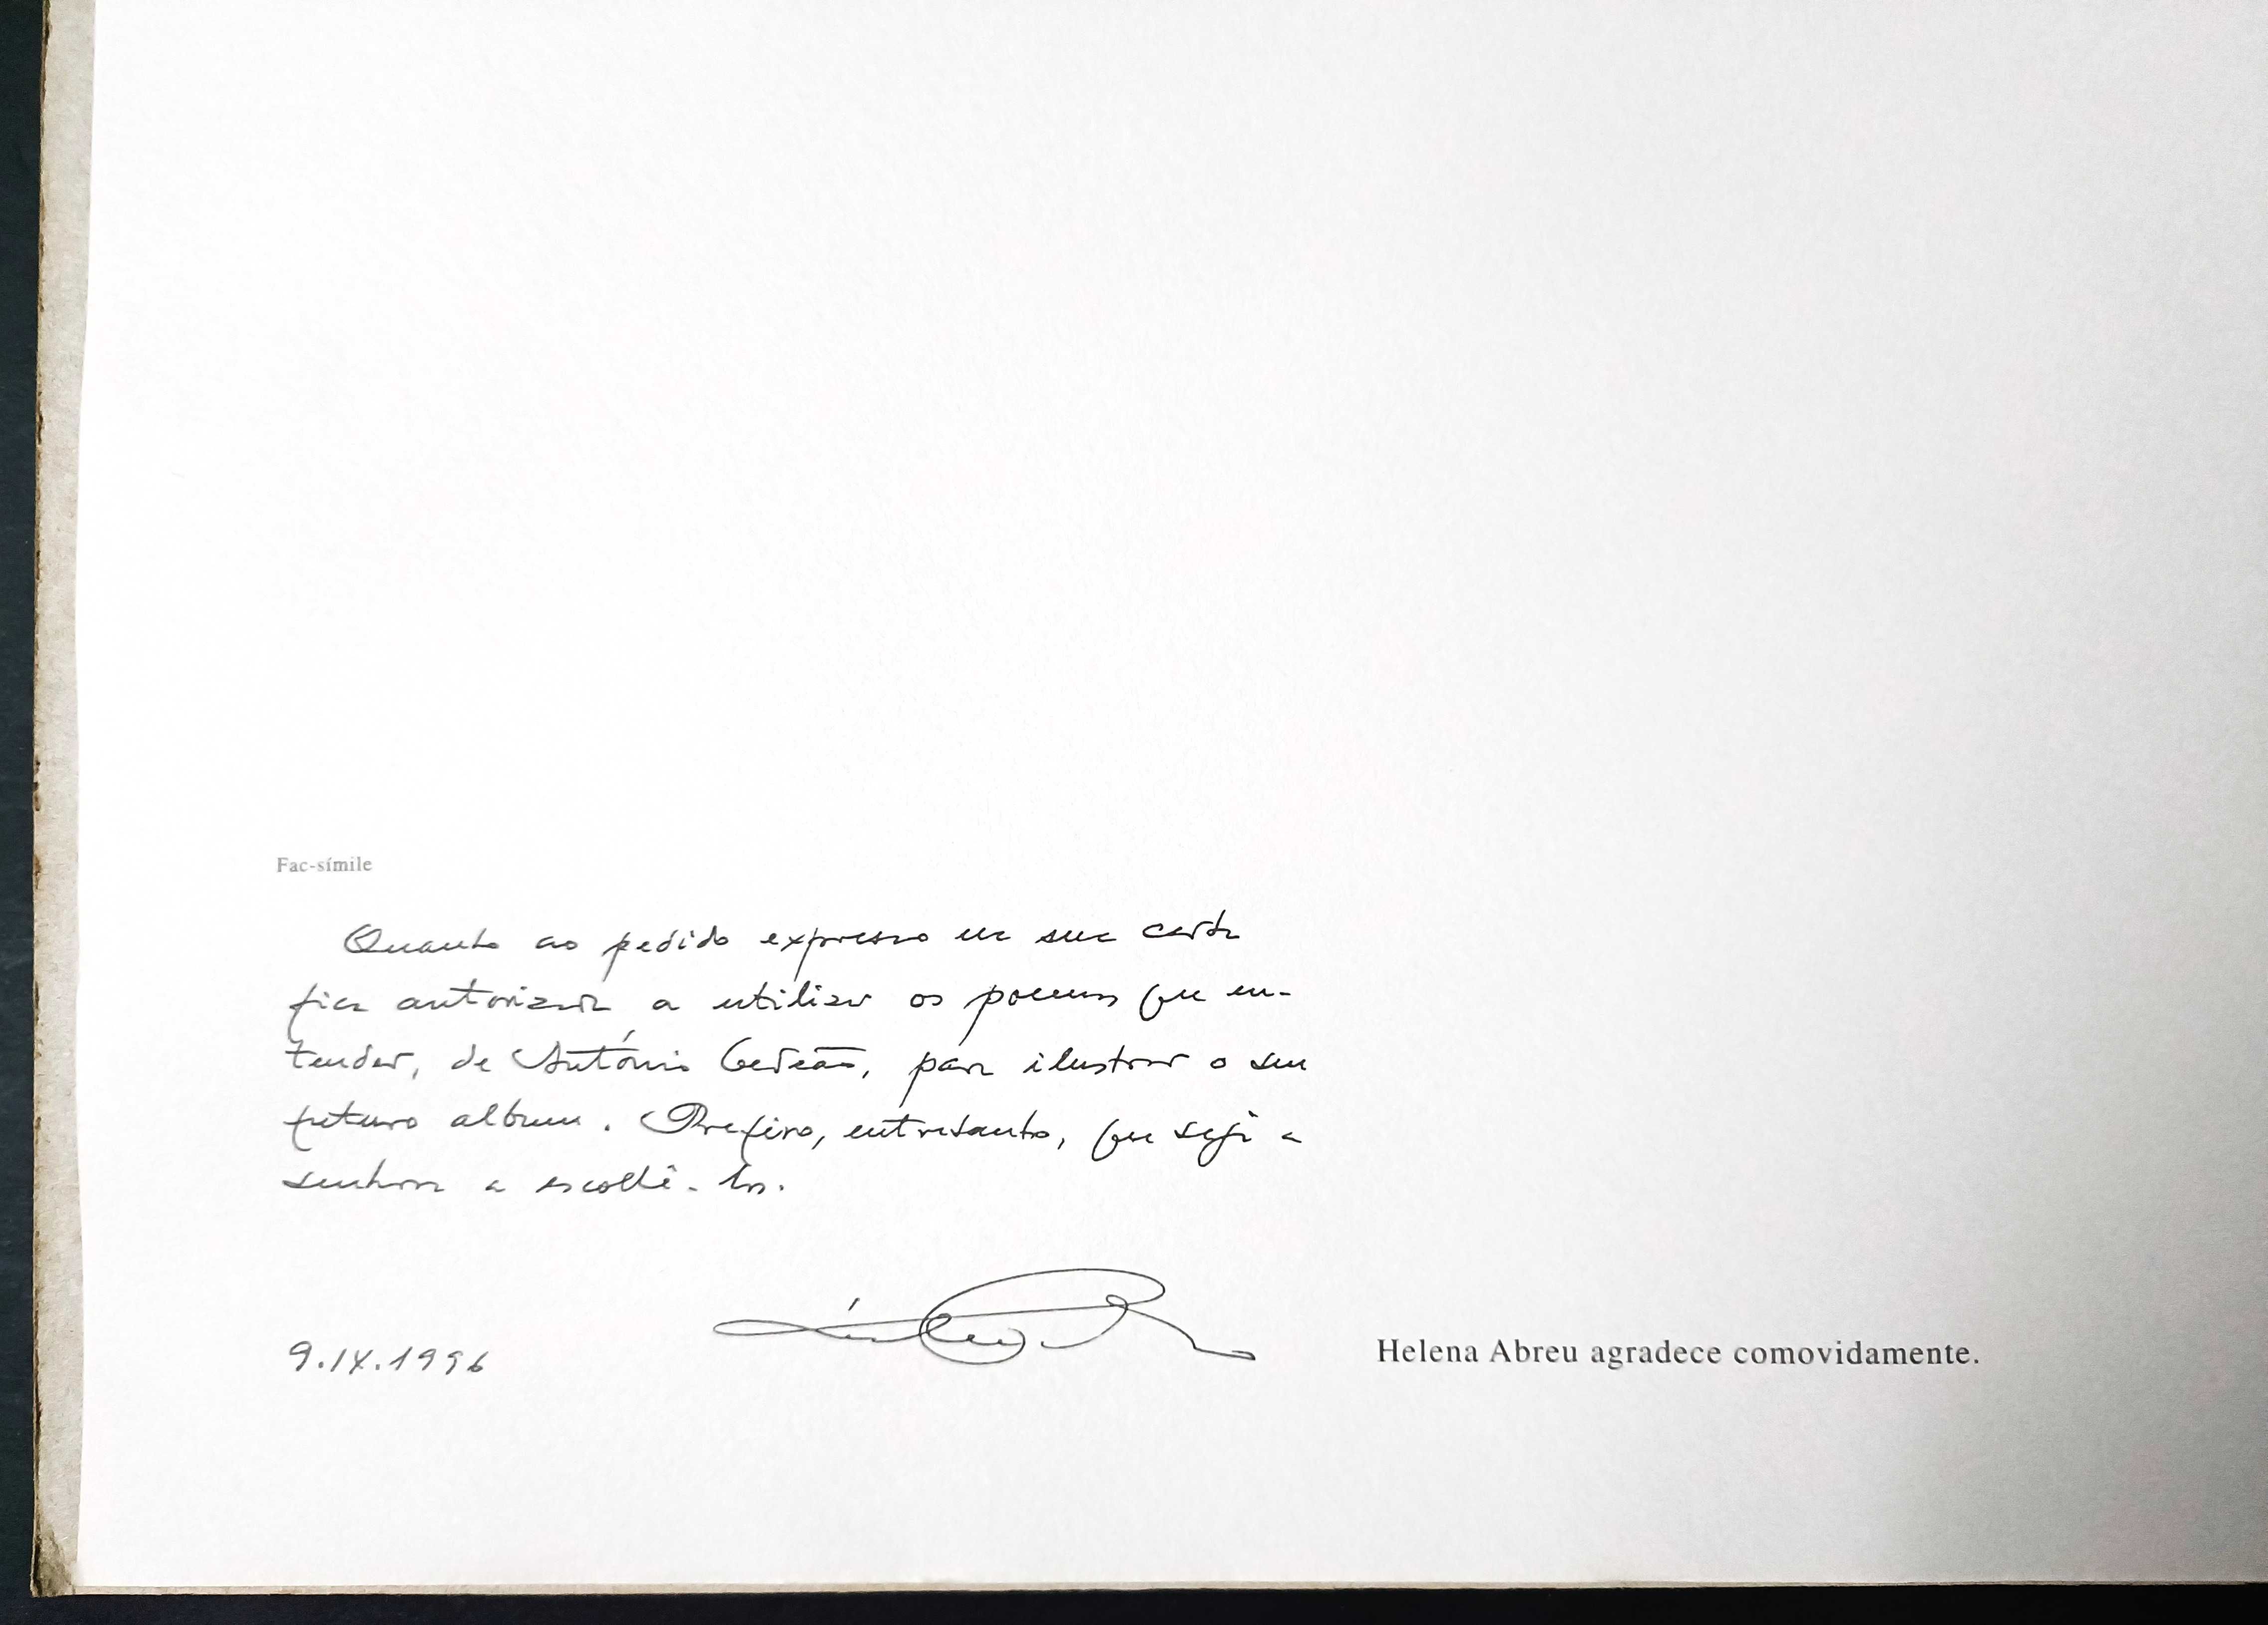 Fac-símile
Quanto ao pedido expresso na sua carta
fica autorizada a utilizar os poemas que en-
tender, de António Gedeão, para ilustrar o seu
futuro album. Prefiro, entretanto, que seja a
senhora a escolhê-los.
9.IX.1996
Helena Abreu agradece comovidamente.